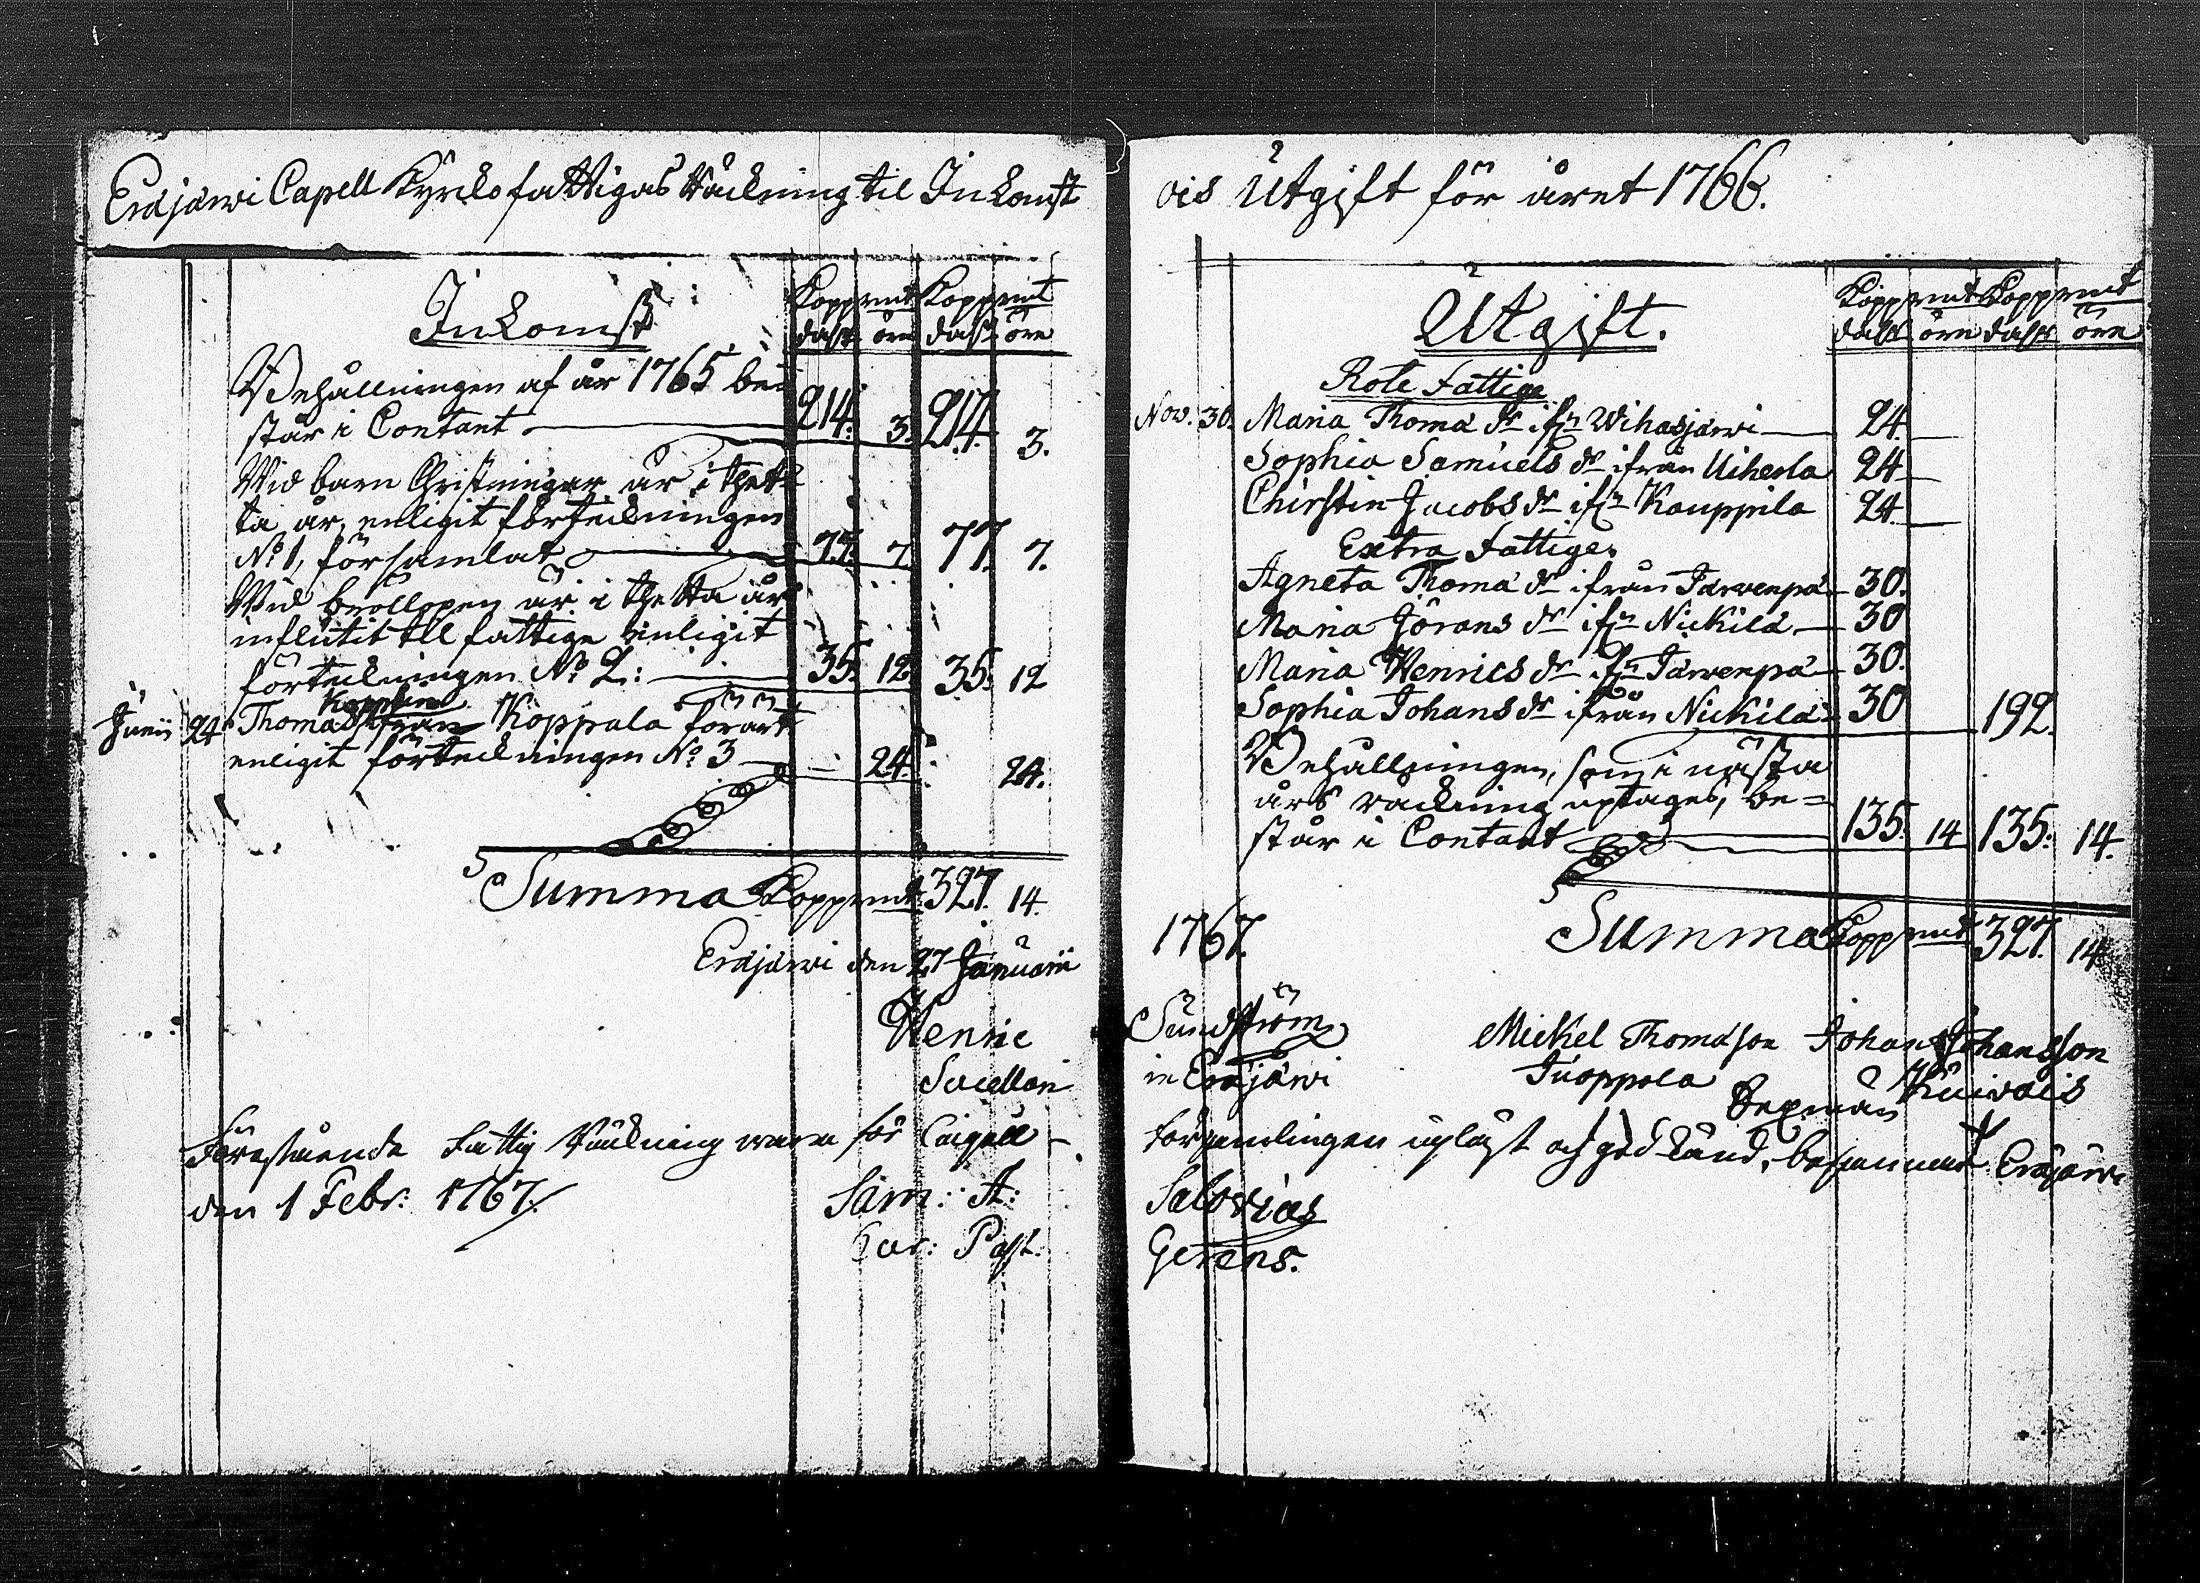 Eräjärwi Capell Kyrcko fattigas Räckning til Inkomst
Inkomst
Koppmt Koppmt
dalr öre dalr öre
Behållningen af år 1765 be-
står i Contant 214. 3. 214. 3.
Wid barn Christningar är i thet-
ta år, enligit förteckningen
No 1, församlat 77. 7. 77. 7.
Wid bröllopen är i thetta år
influtit til fattige enligit
förteckningen No 2: 35. 12 35. 12
Junii 24 Thomas Koppala förärt
enligit förteckningen No 3 24. 24.
Summa Koppmt 327. 14.
Eräjärwi den 27 Januarii
Henric
Sacellan
Förestående Fattig Räckning warn för Capell
den 1 Febr: 1767.
Sam: A:
Past:
ois Utgift för året 1766.
Utgift.
Koppmt Koppmt
dalr öre dalr öre
Rote Fattige
Nov. 30. Maria Thomä dr ifrn Wihasjärwi 24.
Sophia Samuels dr ifrån Uiherla 24
Chirstin Jacobs dr ifrn Kauppila 24
Extra Fattige.
Agneta Thomä dr ifrån Järwenpä 30.
Maria Jörans dr ifrn Nickilä 30
Maria Henrics dr ifrn Järwenpä 30.
Sophia Johans dr ifrån Nickilä 30 192.
Behållningen, som i nästa
års räckning uptages, be-
står i Contant 135. 14 135. 14.
1767. Summa Koppmt 327. 14
Sundström Mickel Thomasson Johan Johansson
in Eräjärwi Juoppola
Sexmän
församlingen upläst och godkänd, Eräjärwi
Salovius
Gerens.